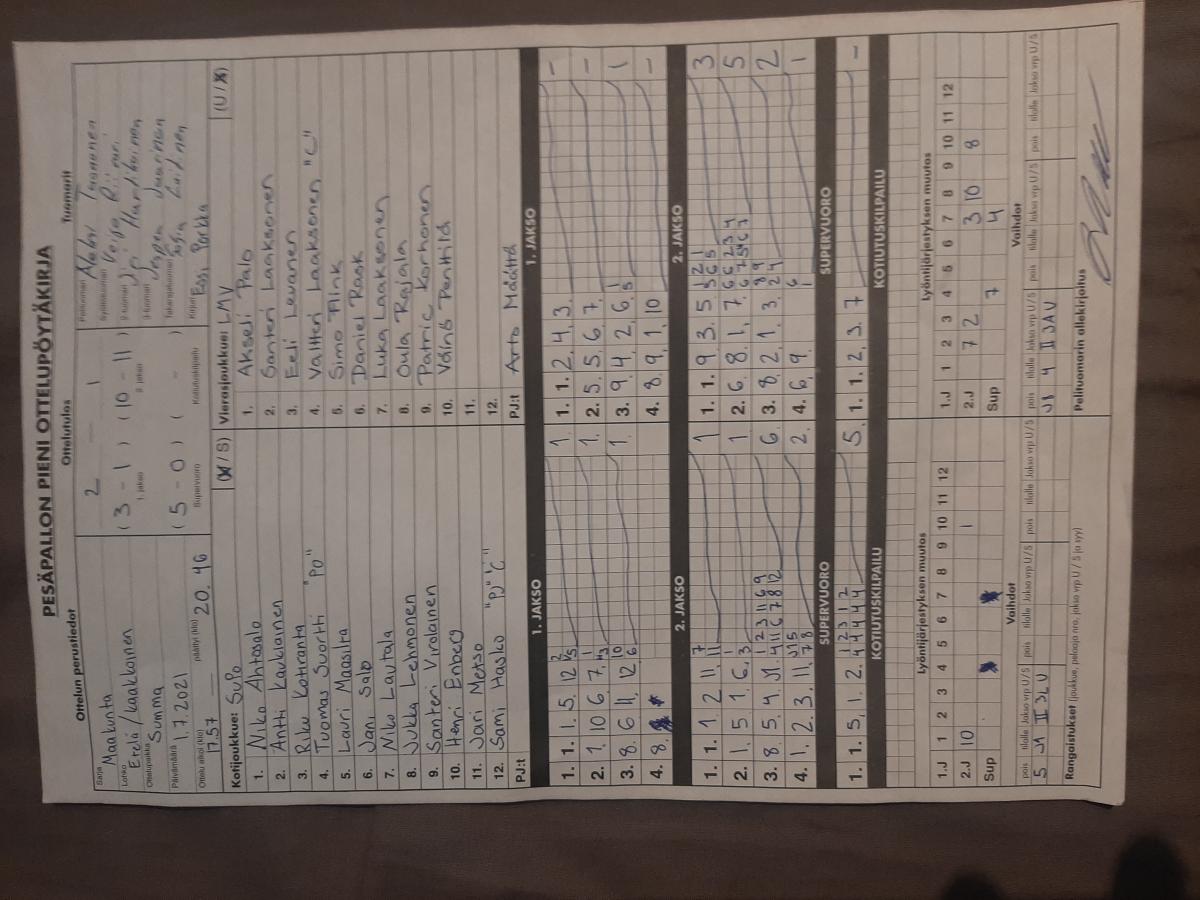 PESÄPALLON PIENI OTTELUPÖYTÄKIRJA
Ottelun perustiedot
Sarja
Maakunta
Lohko
Etelä/kaakkoinen
Ottelupaikka
Summa
Päivämäärä
1.7.2021
Ottelu alkoi (klo)
17.57
päättyi (klo)
20.46
Ottelutulos
2 — 1
(3 - 1) (10 - 11)
1. jakso 2. jakso
(5 - 0) ( - )
Supervuoro Kotiutuskilpailu
Tuomarit
Pelituomari
Syöttötuomari Veijo
2-tuomari
3-tuomari
Takarajatuomari
Kirjuri Essi Porkka
Kotijoukkue: SuPo (U/S)
1. Niko Ahtosalo
2. Antti Laukiainen
3. Riku Kotiranta
4. Tuomas Suortti "PO"
5. Lauri Maasilta
6. Jani Salo
7. Niko Lautala
8. Jukka Lehmonen
9. Santeri Virolainen
10. Henri Enberg
11. Jari Metso
12. Sami Hasko "PJ" "C"
PJ:t
Vierasjoukkue: LMV (U/S)
1. Akseli Palo
2. Santeri Laaksonen
3. Eeli Levanen
4. Valtteri Laaksonen "C"
5. Simo Flink
6. Daniel Rask
7. Luka Laaksonen
8. Oula Rajala
9. Patric Korhonen
10. Väinö Penttilä
11.
12.
PJ:t Arto Määttä
1. JAKSO
1. 1. 1. 5. 12 1
2. 1. 10 6 7. 1.
3. 8. 6 11. 12 1.
4. 8.
1. JAKSO
1. 1. 2. 4 3. –
2. 5. 5. 6 7. –
3. 9. 4 2 6. 1
4. 8. 9, 1, 10 –
2. JAKSO
1. 1. 1 2 11. 1
2. 1. 5 1. 6. 1
3. 8. 5. 4. 6
4. 1. 2. 3. 11. 2.
2. JAKSO
1. 1. 9 3. 5 3
2. 6. 8. 1, 7. 5
3. 8 2, 1. 3. 2
4. 6, 9. 1
SUPERVUORO
1. 1. 5, 1. 2. 5.
SUPERVUORO
1. 1. 2, 3. 7 –
KOTIUTUSKILPAILU
KOTIUTUSKILPAILU
Lyöntijärjestyksen muutos
1.J 1 2 3 4 5 6 7 8 9 10 11 12
2.J 10 1
Sup
Lyöntijärjestyksen muutos
1.J 1 2 3 4 5 6 7 8 9 10 11 12
2.J 7 2 3 10 8
Sup 7 4
Vaihdot
pois tilalle Jakso vrp U/S pois tilalle Jakso vrp U/S pois tilalle Jakso vrp U/S
5 J1 II 3LU
Vaihdot
pois tilalle Jakso vrp U/S pois tilalle Jakso vrp U/S pois tilalle Jakso vrp U/S
J8 4 II 3AU
Rangaistukset (joukkue, pelaaja nro, jakso vrp U / S ja syy)
Pelituomarin allekirjoitus